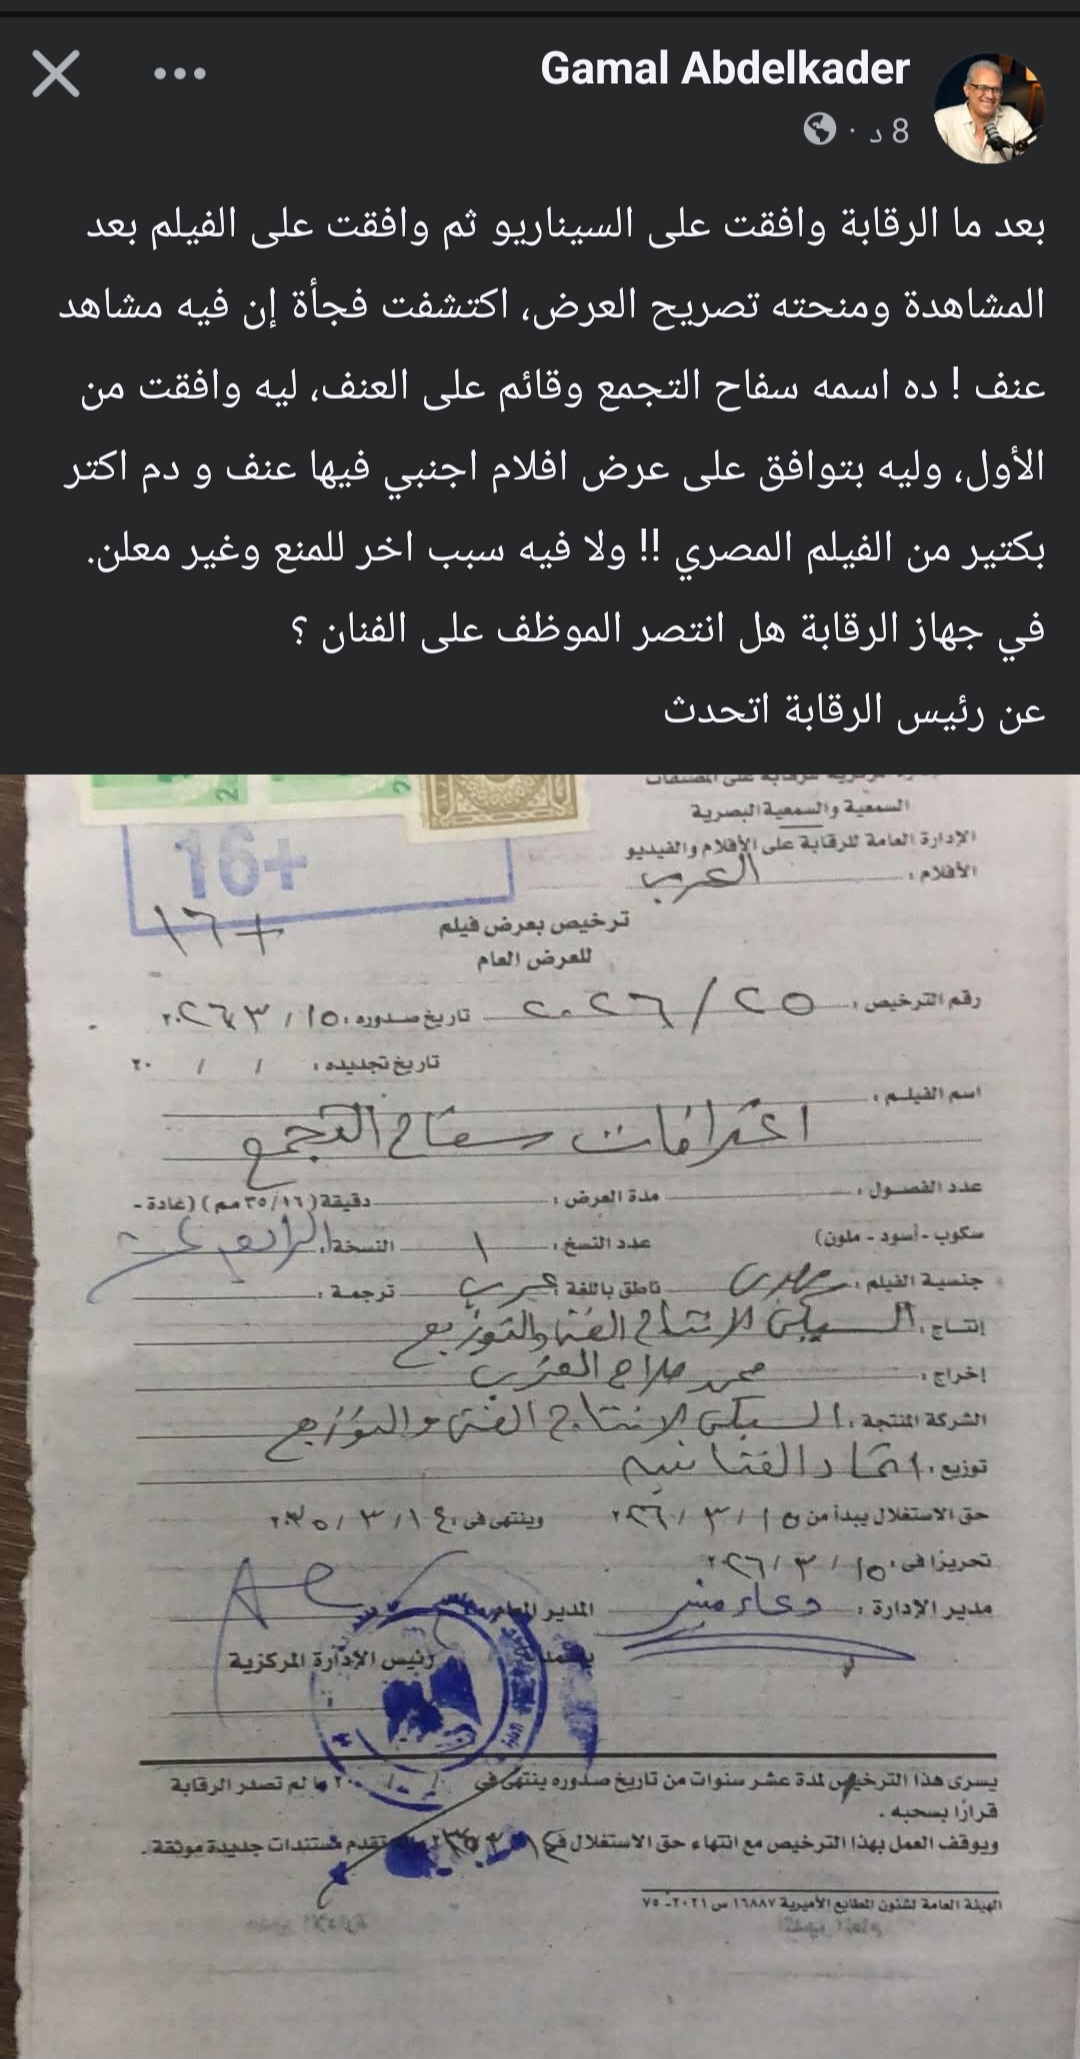 Gamal Abdelkader
8 د ·
بعد ما الرقابة وافقت على السيناريو ثم وافقت على الفيلم بعد
المشاهدة ومنحته تصريح العرض، اكتشفت فجأة إن فيه مشاهد
عنف ! ده اسمه سفاح التجمع وقائم على العنف، ليه وافقت من
الأول، وليه بتوافق على عرض افلام اجنبي فيها عنف و دم اكتر
بكتير من الفيلم المصري !! ولا فيه سبب اخر للمنع وغير معلن.
في جهاز الرقابة هل انتصر الموظف على الفنان ؟
عن رئيس الرقابة اتحدث
السمعية والسمعية البصرية
الإدارة العامة للرقابة على الأفلام والفيديو
الأفلام :
16+
+١٦
ترخيص بعرض فيلم
للعرض العام
رقم الترخيص : ٢٥ / ٢٠٢٦ تاريخ صدوره : ١٥ / ٣ / ٢٠٢٦
تاريخ تجديده : / / ٢٠
اسم الفيلم :
اعترافات سفاح التجمع
عدد الفصول : مدة العرض : دقيقة (٣٥/١٦ مم) (عادة -
سكوب - أسود - ملون) عدد النسخ : ١ النسخة :
جنسية الفيلم : مصرى ناطق باللغة : عربى ترجمة :
إنتاج : السبكى للإنتاج الفنى والتوزيع
إخراج : محمد صلاح العزب
الشركة المنتجة : السبكى للإنتاج الفنى والتوزيع
توزيع : اتحاد الفنانين
حق الاستغلال يبدأ من ١٥ / ٣ / ٢٠٢٦ وينتهى فى : ١٤ / ٣ / ٢٠٣٥
تحريرًا فى : ١٥ / ٣ / ٢٠٢٦
مدير الإدارة : دعاء منير المدير العام
يعتمد رئيس الإدارة المركزية
يسرى هذا الترخيص لمدة عشر سنوات من تاريخ صدوره ينتهى فى / / ٢٠ ما لم تصدر الرقابة
قرارًا بسحبه .
ويوقف العمل بهذا الترخيص مع انتهاء حق الاستغلال فى تقدم مستندات جديدة موثقة .
الهيئة العامة لشئون المطابع الأميرية ١٦٨٨٧ س ٢٠٢١ - ٧٥